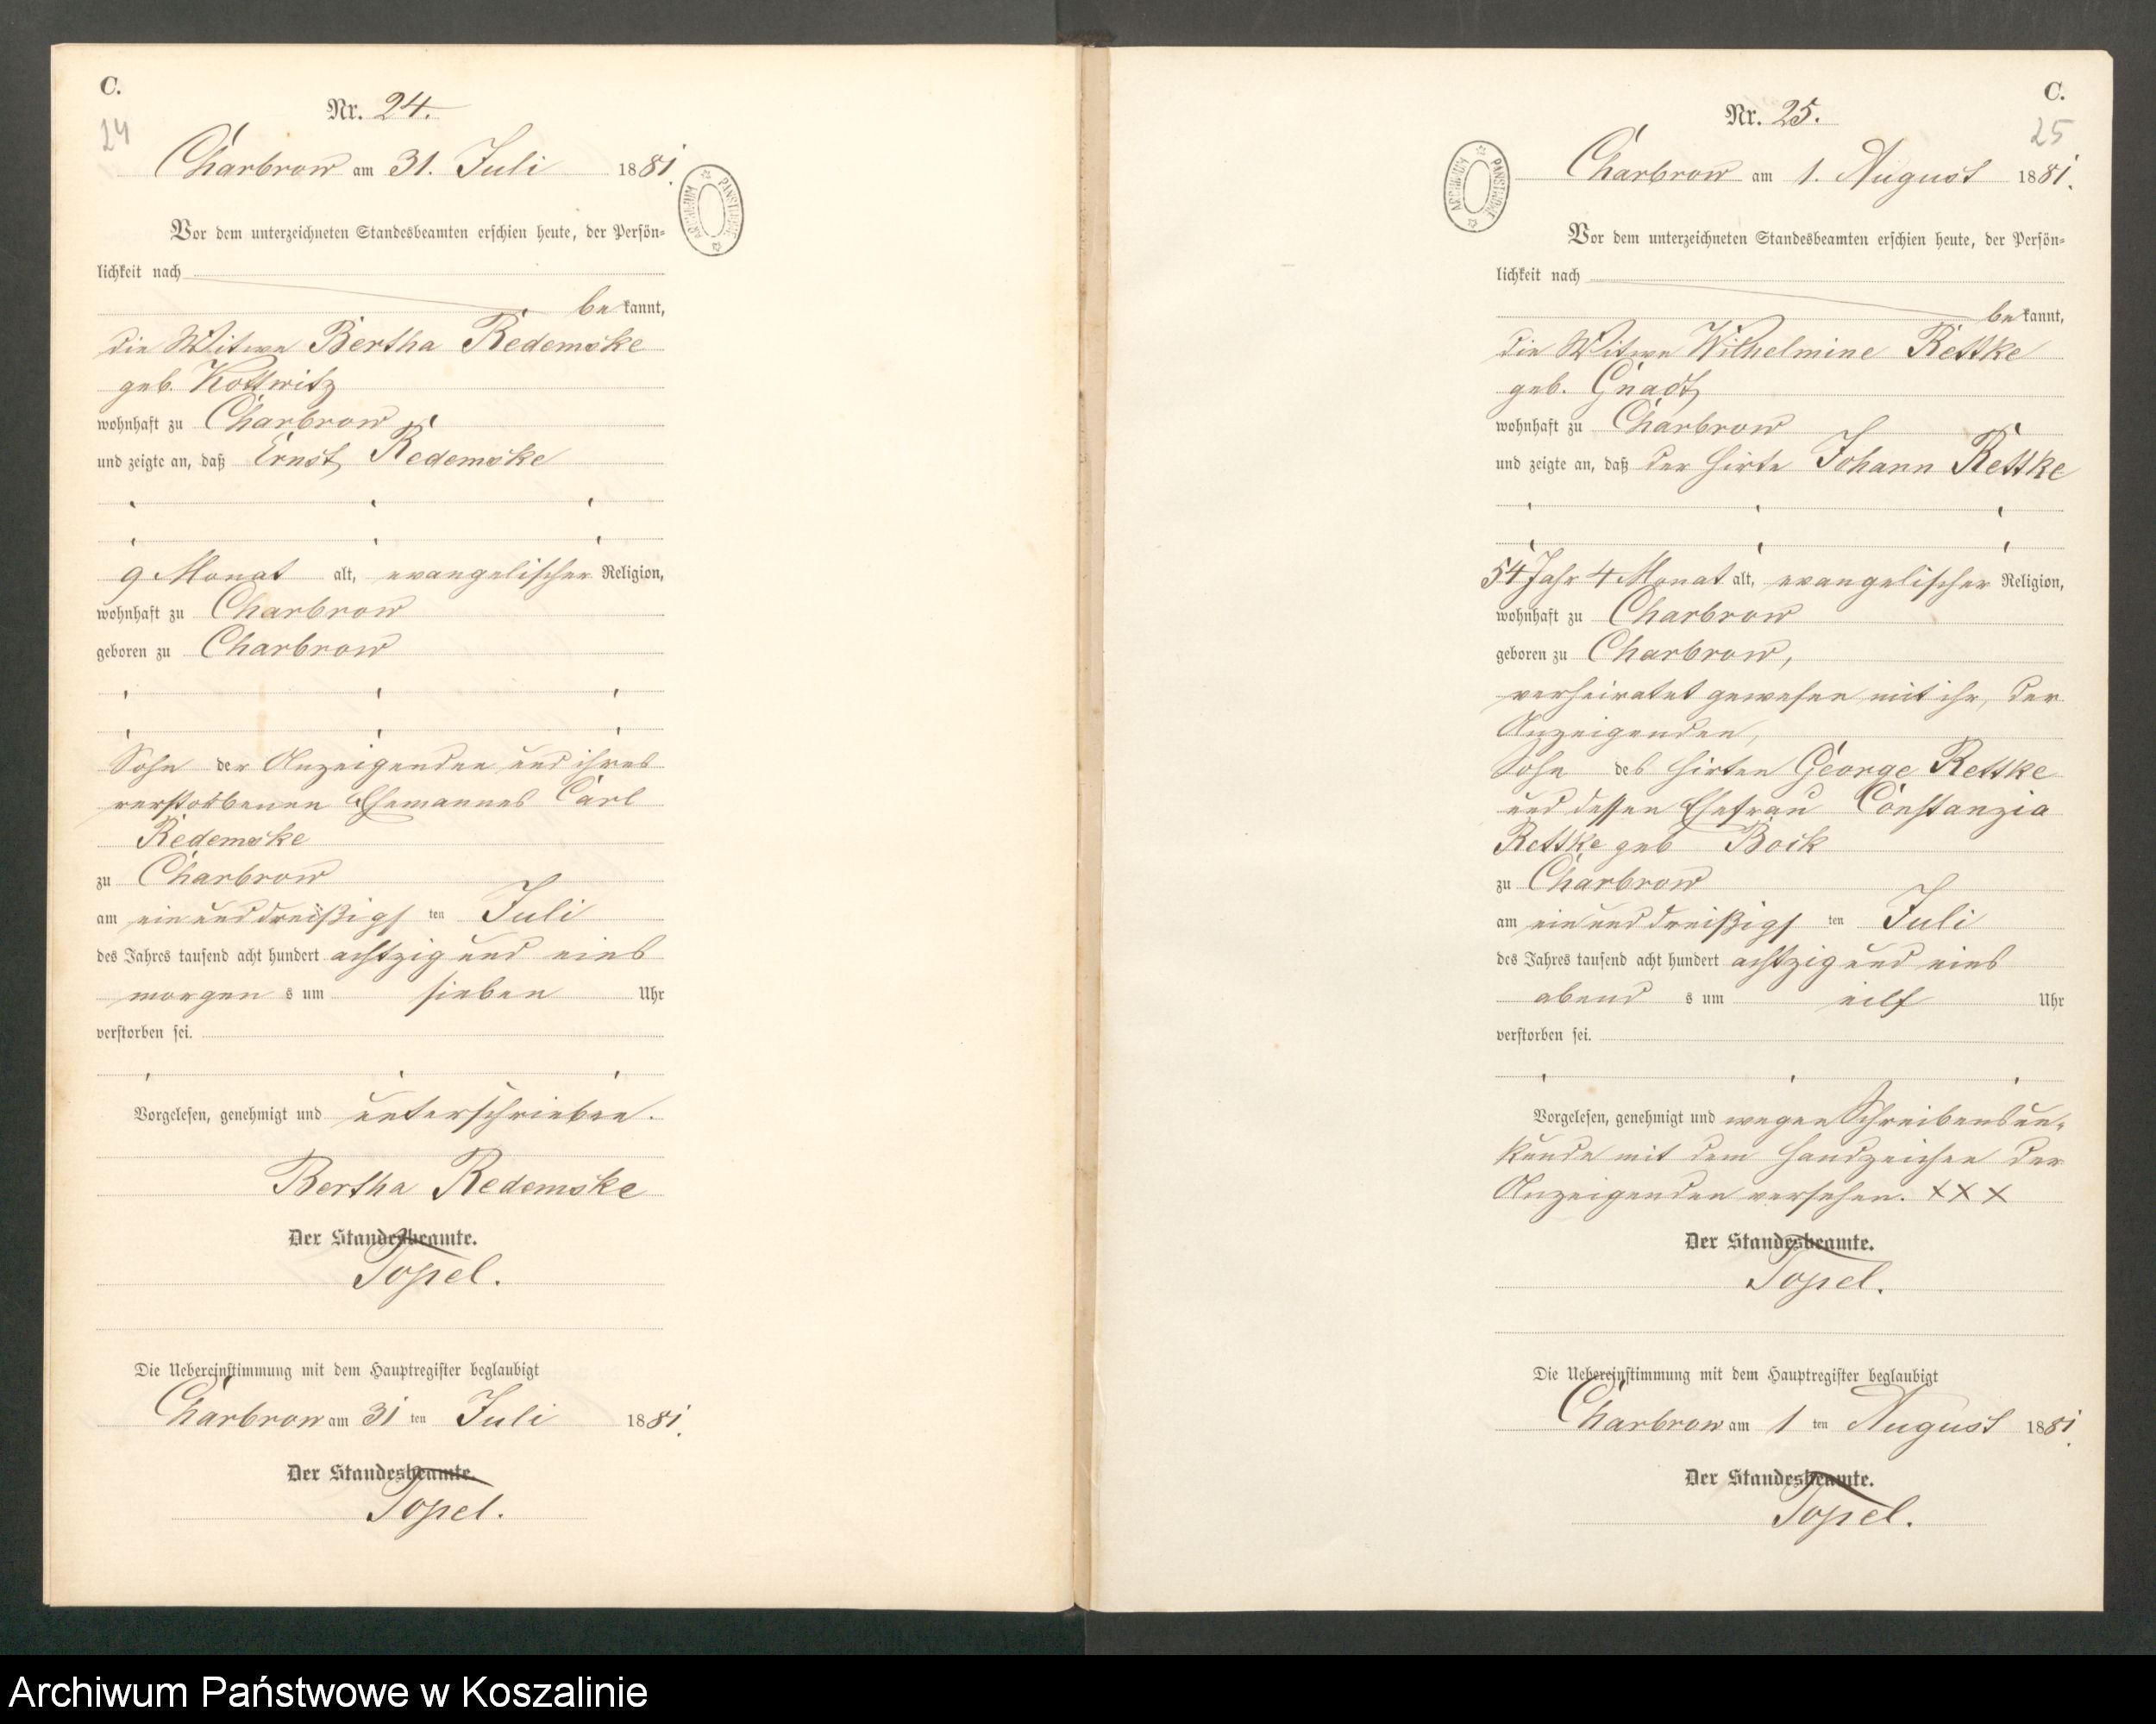 C.
24
Nr. 24.
Charbrow am 31. Juli 1881.
ARCHIWUM PAŃSTWOWE
Vor dem unterzeichneten Standesbeamten erschien heute, der Persön-
lichkeit nach
bekannt,
die Witwe Bertha Redemske
geb. Kottwitz
wohnhaft zu Charbrow
und zeigte an, daß Ernst Redemske
9 Monat alt, evangelischer Religion,
wohnhaft zu Charbrow
geboren zu Charbrow
Sohn der Anzeigenden und ihres
verstorbenen Ehemannes Carl
Redemske
zu Charbrow
am ein und dreißigsten Juli
des Jahres tausend acht hundert achtzig und eins
morgens um sieben Uhr
verstorben sei.
Vorgelesen, genehmigt und unterschrieben.
Bertha Redemske
Der Standesbeamte.
Topel.
Die Uebereinstimmung mit dem Hauptregister beglaubigt
Charbrow am 31 ten Juli 1881.
Der Standesbeamte.
Topel.
C.
25
Nr. 25.
ARCHIWUM PAŃSTWOWE
Charbrow am 1. August 1881.
Vor dem unterzeichneten Standesbeamten erschien heute, der Persön-
lichkeit nach
bekannt,
die Witwe Wilhelmine Rettke
geb. Gnadt
wohnhaft zu Charbrow
und zeigte an, daß der Hirte Johann Rettke
54 Jahr 4 Monat alt, evangelischer Religion,
wohnhaft zu Charbrow
geboren zu Charbrow,
verheiratet gewesen mit ihr, der
Anzeigenden,
Sohn des Hirten George Rettke
und dessen Ehefrau Constanzia
Rettke geb Bock
zu Charbrow
am ein und dreißigsten Juli
des Jahres tausend acht hundert achtzig und eins
abends um eilf Uhr
verstorben sei.
Vorgelesen, genehmigt und wegen Schreibensun-
kunde mit dem Handzeichen der
Anzeigenden versehen. XXX
Der Standesbeamte.
Topel.
Die Uebereinstimmung mit dem Hauptregister beglaubigt
Charbrow am 1 ten August 1881.
Der Standesbeamte.
Topel.
Archiwum Państwowe w Koszalinie